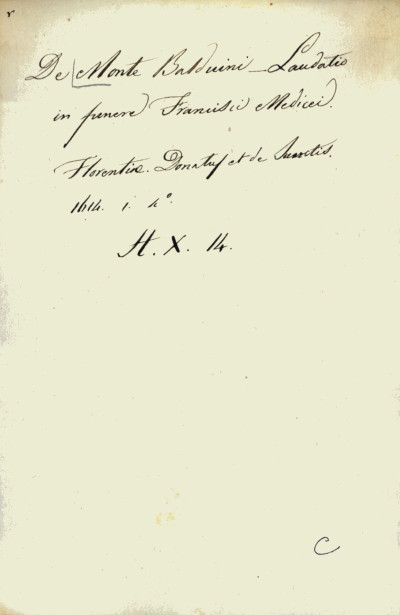 De Monte Balduini - Laudatio
in funere Francisci Medicei.
Florentiæ. Donatus et de
1614. i. 4°.
H. X. 14.
C